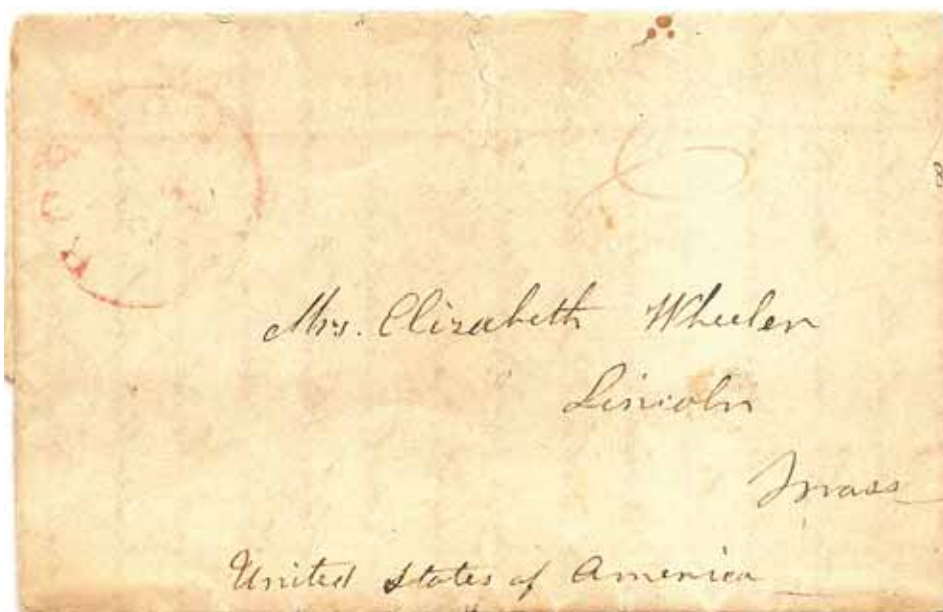 Mrs. Elizabeth Wheeler
Lincoln
Mass
United States of America